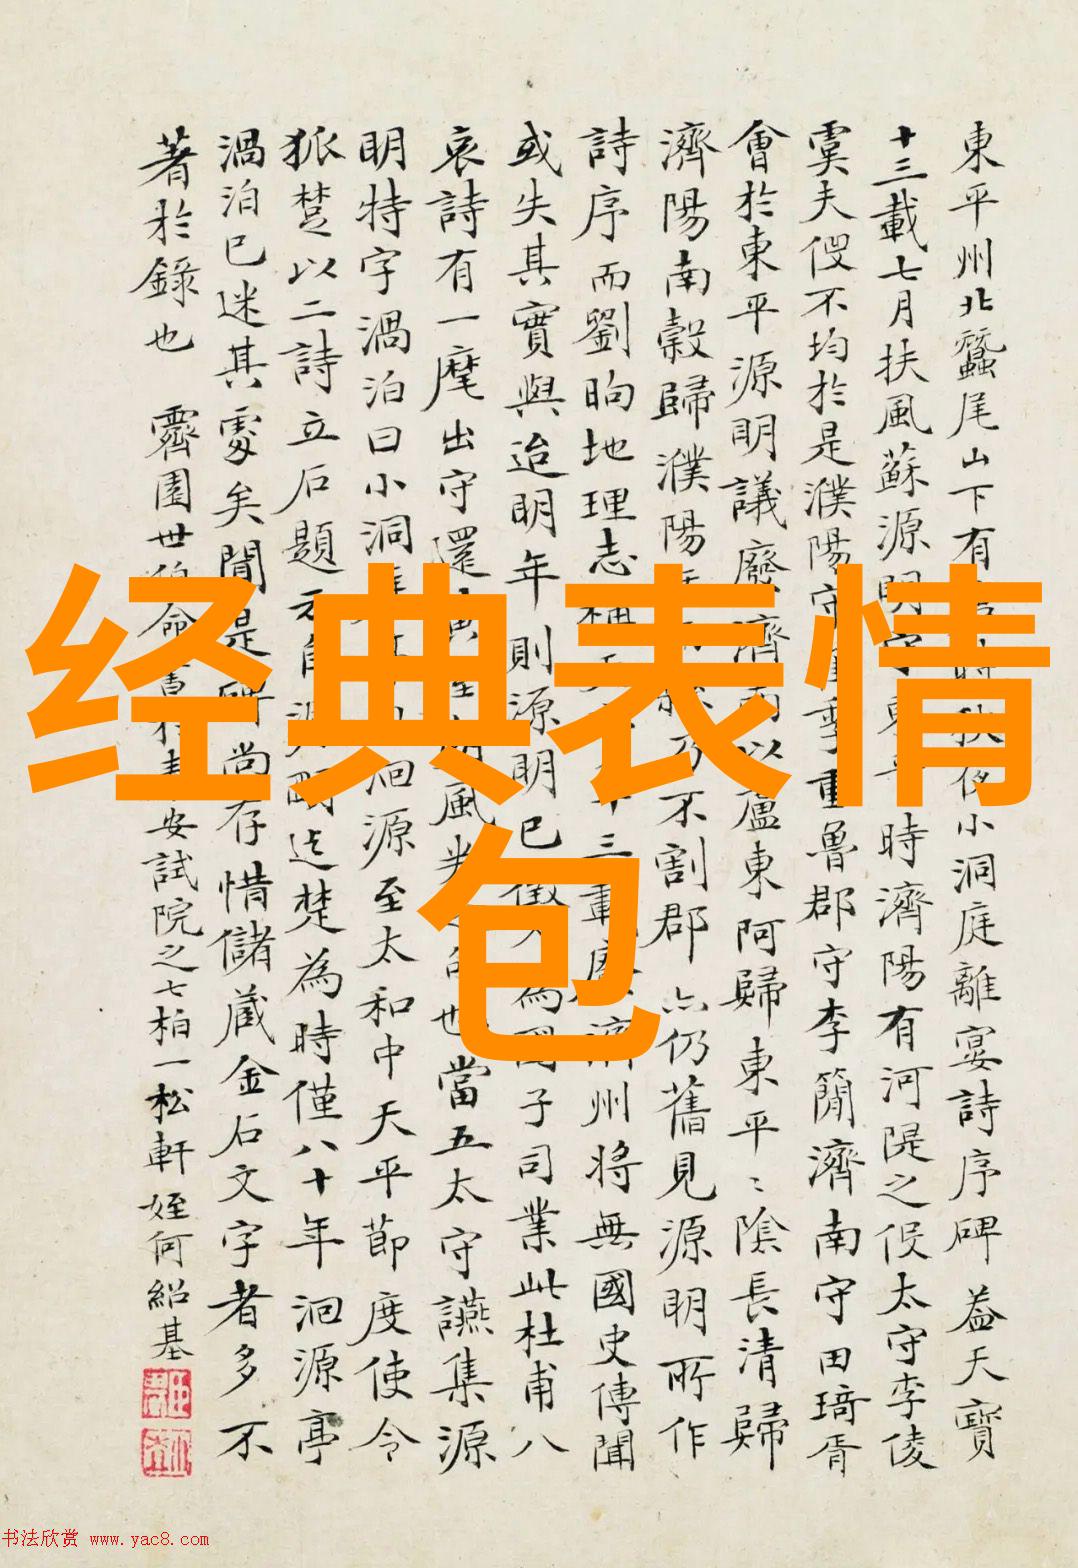 東平州北蠶尾山下有
小洞庭離宴詩序碑蓋天寶
十三載七月扶風蘇源明守東平時濟陽有河隄之役太守李倰
虞夫役不均於是濮陽守
季重魯郡守李簡濟南守田琦胥
會於東平源明議廢濟陽以盧東阿歸東平二陰長清歸
濟陽南穀歸濮陽
乃不割郡亦仍舊見源明所作
詩序而劉昫地理志稱天
十三載廢濟州將無國史傳聞
或失其實與迨明年則源明已徵
為國子司業此杜甫八
哀詩有一麾出守還
風
也當五太守讌集源
明特字渦泊曰小洞庭
洄源至太和中天平節度使令
狐楚以二詩立石題
迄楚為時僅八十年洄源亭
渦泊已迷其處矣聞是碑尚存惜儲藏金石文字者多不
著於錄也
霽園世伯命書於
安試院之七柏一松軒 姪何紹基
经典表情
包
书法欣赏 www.yac8.com